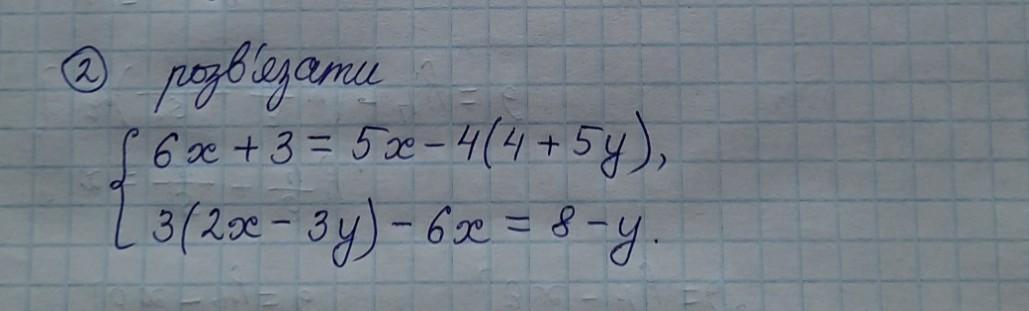 ② розв'язати
{ 6x + 3 = 5x - 4(4 + 5y),
3(2x - 3y) - 6x = 8 - y.